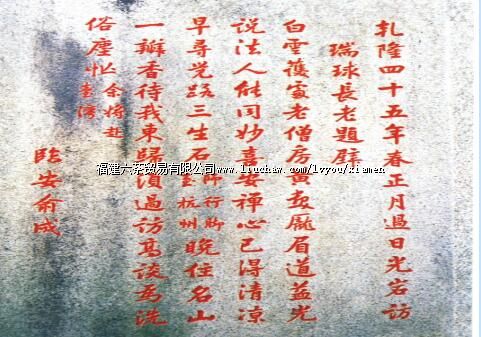 乹隆四十五年春正月過日光岩訪
瑞球長老題壁
白雲護處老僧房黄髮厖眉道益光
说法人能同妙喜安禪心已得清凉
早尋觉路三生石師行脚至杭州晚住名山
一瓣香待我東歸須過訪高談為洗
俗塵忙余將赴臺湾
臨安俞成
福建六茶贸易有限公司www.liuchaw.com/lvyou/xiamen